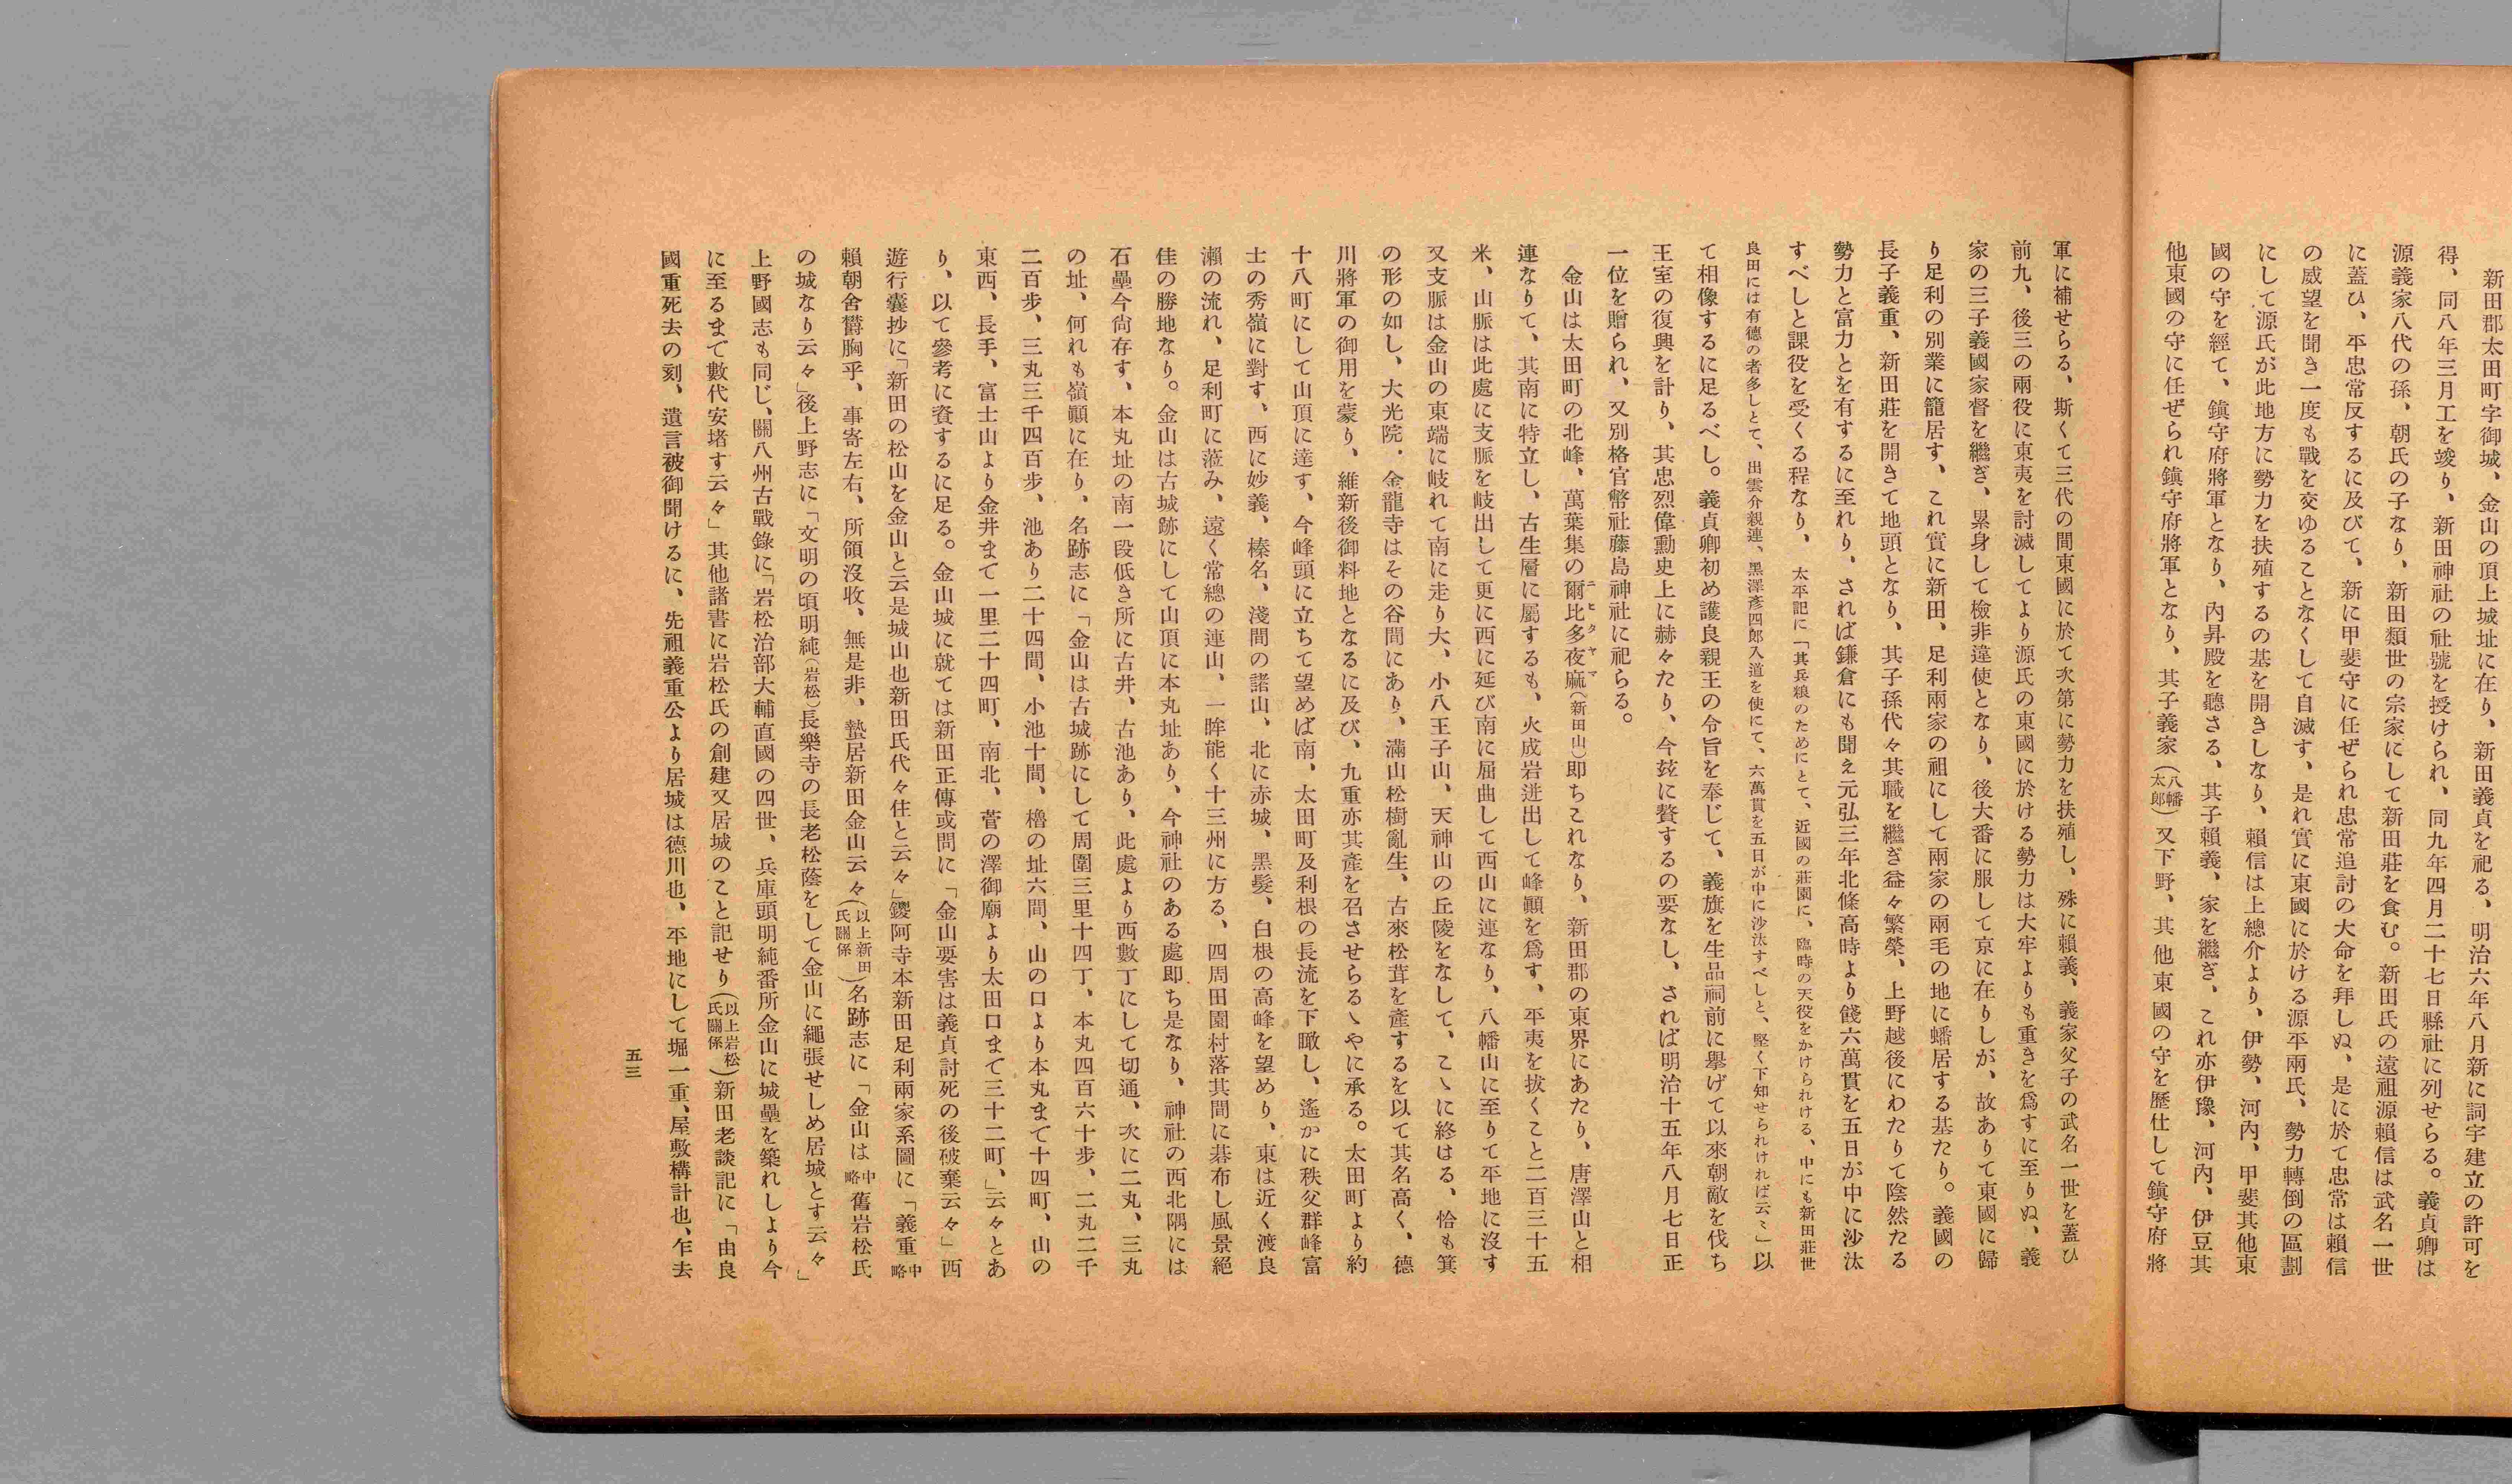 新田郡太田町字御城、金山の頂上城址に在り、新田義貞を祀る、明治六年八月新に詞宇建立の許可を
得、同八年三月工を竣り、新田神社の社號を授けられ、同九年四月二十七日縣社に列せらる。義貞卿は
源義家八代の孫、朝氏の子なり、新田類世の宗家にして新田莊を食む。新田氏の遠祖源賴信は武名一世
に蓋ひ、平忠常反するに及びて、新に甲斐守に任ぜられ忠常追討の大命を拜しぬ、是に於て忠常は賴信
の威望を聞き一度も戰を交ゆることなくして自滅す、是れ實に東國に於ける源平兩氏、勢力轉倒の區劃
にして源氏が此地方に勢力を扶殖するの基を開きしなり、賴信は上總介より、伊勢、河內、甲斐其他東
國の守を經て、鎭守府將軍となり、內昇殿を聽さる、其子賴義、家を繼ぎ、これ亦伊豫、河內、伊豆其
他東國の守に任ぜられ鎭守府將軍となり、其子義家（八幡太郎）又下野、其他東國の守を歷仕して鎭守府將
軍に補せらる、斯くて三代の間東國に於て次第に勢力を扶殖し、殊に賴義、義家父子の武名一世を蓋ひ
前九、後三の兩役に東夷を討滅してより源氏の東國に於ける勢力は大牢よりも重きを爲すに至りぬ、義
家の三子義國家督を繼ぎ、累身して檢非違使となり、後大番に服して京に在りしが、故ありて東國に歸
り足利の別業に籠居す、これ實に新田、足利兩家の祖にして兩家の兩毛の地に蟠居する基たり。義國の
長子義重、新田莊を開きて地頭となり、其子孫代々其職を繼ぎ益々繁榮、上野越後にわたりて陰然たる
勢力と富力とを有するに至れり、されば鎌倉にも聞え元弘三年北條高時より餞六萬貫を五日が中に沙汰
すべしと課役を受くる程なり、太平記に「其兵粮のためにとて、近國の莊園に、臨時の天役をかけられける、中にも新田莊世
良田には有德の者多しとて、出雲介親連、黑澤彥四郞入道を使にて、六萬貫を五日が中に沙汰すべしと、堅く下知せられければ云々」以
て相像するに足るべし。義貞卿初め護良親王の令旨を奉じて、義旗を生品祠前に擧げて以來朝敵を伐ち
王室の復興を計り、其忠烈偉勳史上に赫々たり、今玆に贅するの要なし、されば明治十五年八月七日正
一位を贈られ、又別格官幣社藤島神社に祀らる。
金山は太田町の北峰、萬葉集の爾比多夜麻（新田山）卽ちこれなり、新田郡の東界にあたり、唐澤山と相
連なりて、其南に特立し、古生層に屬するも、火成岩迸出して峰巓を爲す、平夷を拔くこと二百三十五
米、山脈は此處に支脈を岐出して更に西に延び南に屈曲して西山に連なり、八幡山に至りて平地に沒す
又支脈は金山の東端に岐れて南に走り大、小八王子山、天神山の丘陵をなして、こゝに終はる、恰も箕
の形の如し、大光院、金龍寺はその谷間にあり、滿山松樹亂生、古來松茸を產するを以て其名高く、德
川將軍の御用を蒙り、維新後御料地となるに及び、九重亦其產を召させらるゝやに承る。太田町より約
十八町にして山頂に達す、今峰頭に立ちて望めば南、太田町及利根の長流を下瞰し、遙かに秩父群峰富
士の秀嶺に對す、西に妙義、榛名、淺間の諸山、北に赤城、黑髮、白根の高峰を望めり、東は近く渡良
瀨の流れ、足利町に蒞み、遠く常總の連山、一眸能く十三州に方る、四周田園村落其間に碁布し風景絕
佳の勝地なり。金山は古城跡にして山頂に本丸址あり、今神社のある處卽ち是なり、神社の西北隅には
石壘今尙存す、本丸址の南一段低き所に古井、古池あり、此處より西數丁にして切通、次に二丸、三丸
の址、何れも嶺巓に在り、名跡志に「金山は古城跡にして周圍三里十四丁、本丸四百六十步、二丸二千
二百步、三丸三千四百步、池あり二十四間、小池十間、櫓の址六間、山の口より本丸まて十四町、山の
東西、長手、富士山より金井まて一里二十四町、南北、菅の澤御廟より太田口まて三十二町、」云々とあ
り、以て參考に資するに足る。金山城に就ては新田正傳或問に「金山要害は義貞討死の後破棄云々」西
遊行囊抄に「新田の松山を金山と云是城山也新田氏代々住と云々」鑁阿寺本新田足利兩家系圖に「義重中略
賴朝舍欝胸乎、事寄左右、所領沒收、無是非、蟄居新田金山云々（以上新田氏關係）名跡志に「金山は中略舊岩松氏
の城なり云々」後上野志に「文明の頃明純（岩松）長樂寺の長老松蔭をして金山に繩張せしめ居城とす云々」
上野國志も同じ、關八州古戰錄に「岩松治部大輔直國の四世、兵庫頭明純番所金山に城壘を築れしより今
に至るまで數代安堵す云々」其他諸書に岩松氏の創建又居城のこと記せり（以上岩松氏關係）新田老談記に「由良
國重死去の刻、遺言被御聞けるに、先祖義重公より居城は德川也、平地にして堀一重、屋敷構計也、乍去
五三